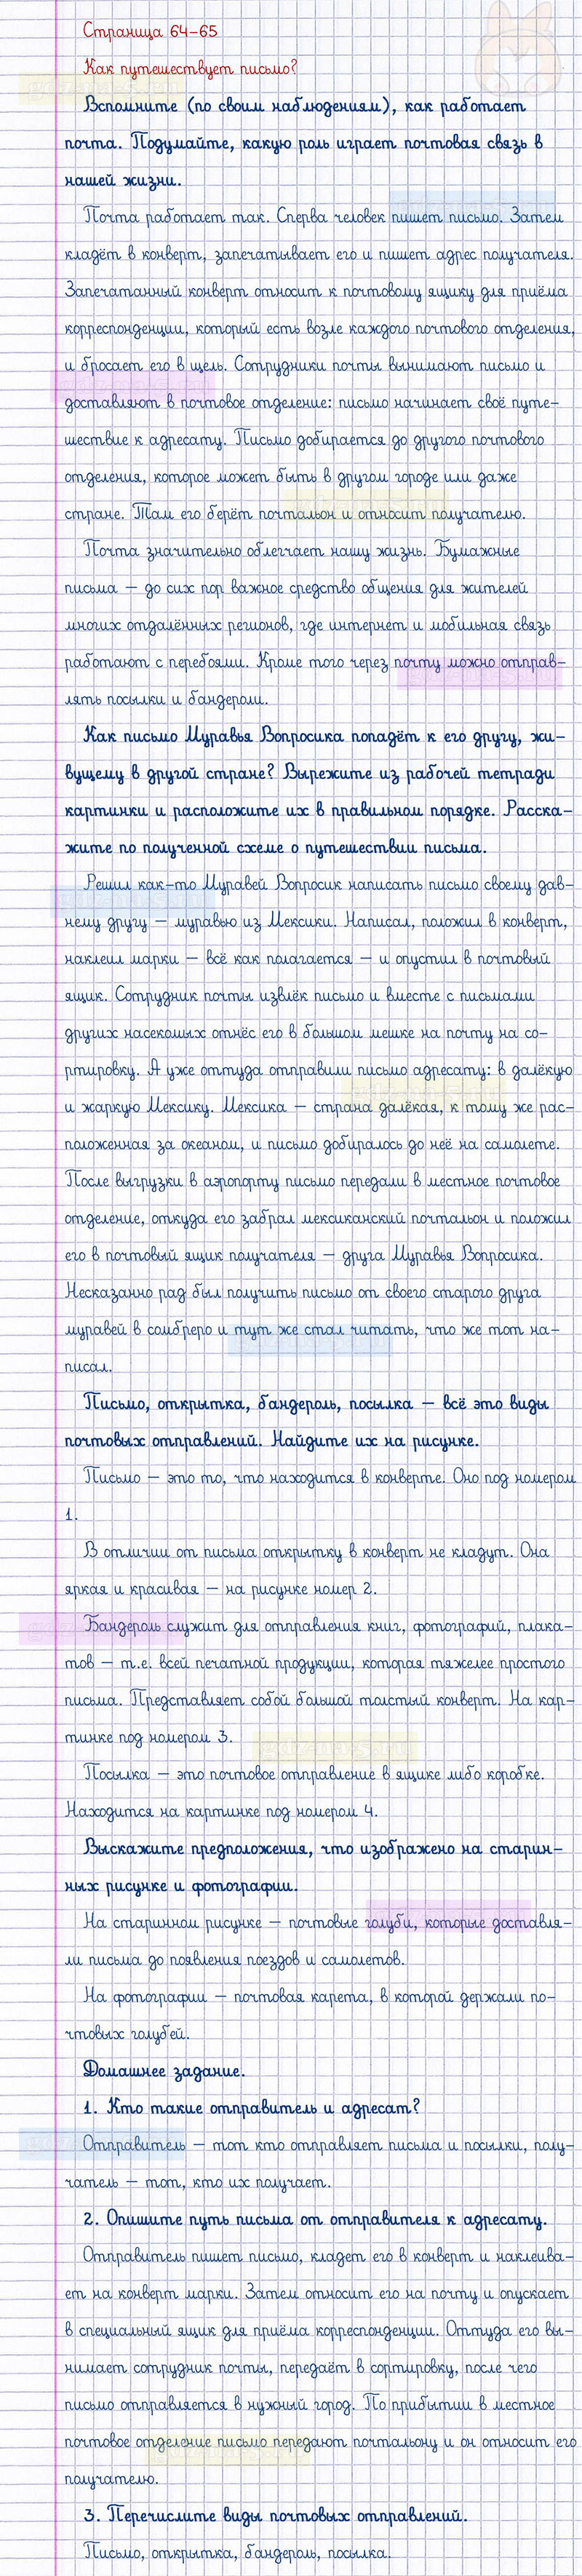 Страница 64-65
Как путешествует письмо?
Вспомните (по своим наблюдениям), как работает
почта. Подумайте, какую роль играет почтовая связь в
нашей жизни.
Почта работает так. Сперва человек пишет письмо. Затем
кладёт в конверт, запечатывает его и пишет адрес получателя.
Запечатанный конверт относит к почтовому ящику для приёма
корреспонденции, который есть возле каждого почтового отделения,
и бросает его в щель. Сотрудники почты вынимают письмо и
доставляют в почтовое отделение: письмо начинает своё путе-
шествие к адресату. Письмо добирается до другого почтового
отделения, которое может быть в другом городе или даже
стране. Там его берёт почтальон и относит получателю.
Почта значительно облегчает нашу жизнь. Бумажные
письма – до сих пор важное средство общения для жителей
многих отдалённых регионов, где интернет и мобильная связь
работают с перебоями. Кроме того через почту можно отправ-
лять посылки и бандероли.
Как письмо Муравья Вопросика попадёт к его другу, жи-
вущему в другой стране? Вырежите из рабочей тетради
картинки и расположите их в правильном порядке. Расска-
жите по полученной схеме о путешествии письма.
Решил как-то Муравей Вопросик написать письмо своему дав-
нему другу – муравью из Мексики. Написал, положил в конверт,
наклеил марки – всё как полагается – и опустил в почтовый
ящик. Сотрудник почты извлёк письмо и вместе с письмами
других насекомых отнёс его в большом мешке на почту на со-
ртировку. А уже оттуда отправили письмо адресату: в далёкую
и жаркую Мексику. Мексика – страна далёкая, к тому же рас-
положенная за океаном, и письмо добиралось до неё на самолете.
После выгрузки в аэропорту письмо передали в местное почтовое
отделение, откуда его забрал мексиканский почтальон и положил
его в почтовый ящик получателя – друга Муравья Вопросика.
Несказанно рад был получить письмо от своего старого друга
муравей в сомбреро и тут же стал читать, что же тот на-
писал.
Письмо, открытка, бандероль, посылка – всё это виды
почтовых отправлений. Найдите их на рисунке.
Письмо – это то, что находится в конверте. Оно под номером
1.
В отличии от письма открытку в конверт не кладут. Она
яркая и красивая – на рисунке номер 2.
Бандероль служит для отправления книг, фотографий, плака-
тов – т.е. всей печатной продукции, которая тяжелее простого
письма. Представляет собой большой толстый конверт. На кар-
тинке под номером 3.
Посылка – это почтовое отправление в ящике либо коробке.
Находится на картинке под номером 4.
Выскажите предположения, что изображено на старин-
ных рисунке и фотографии.
На старинном рисунке – почтовые голуби, которые доставля-
ли письма до появления поездов и самолетов.
На фотографии – почтовая карета, в которой держали по-
чтовых голубей.
Домашнее задание.
1. Кто такие отправитель и адресат?
Отправитель – тот кто отправляет письма и посылки, полу-
чатель – тот, кто их получает.
2. Опишите путь письма от отправителя к адресату.
Отправитель пишет письмо, кладет его в конверт и наклеива-
ет на конверт марки. Затем относит его на почту и опускает
в специальный ящик для приёма корреспонденции. Оттуда его вы-
нимает сотрудник почты, передаёт в сортировку, после чего
письмо отправляется в нужный город. По прибытии в местное
почтовое отделение письмо передают почтальону и он относит его
получателю.
3. Перечислите виды почтовых отправлений.
Письмо, открытка, бандероль, посылка.